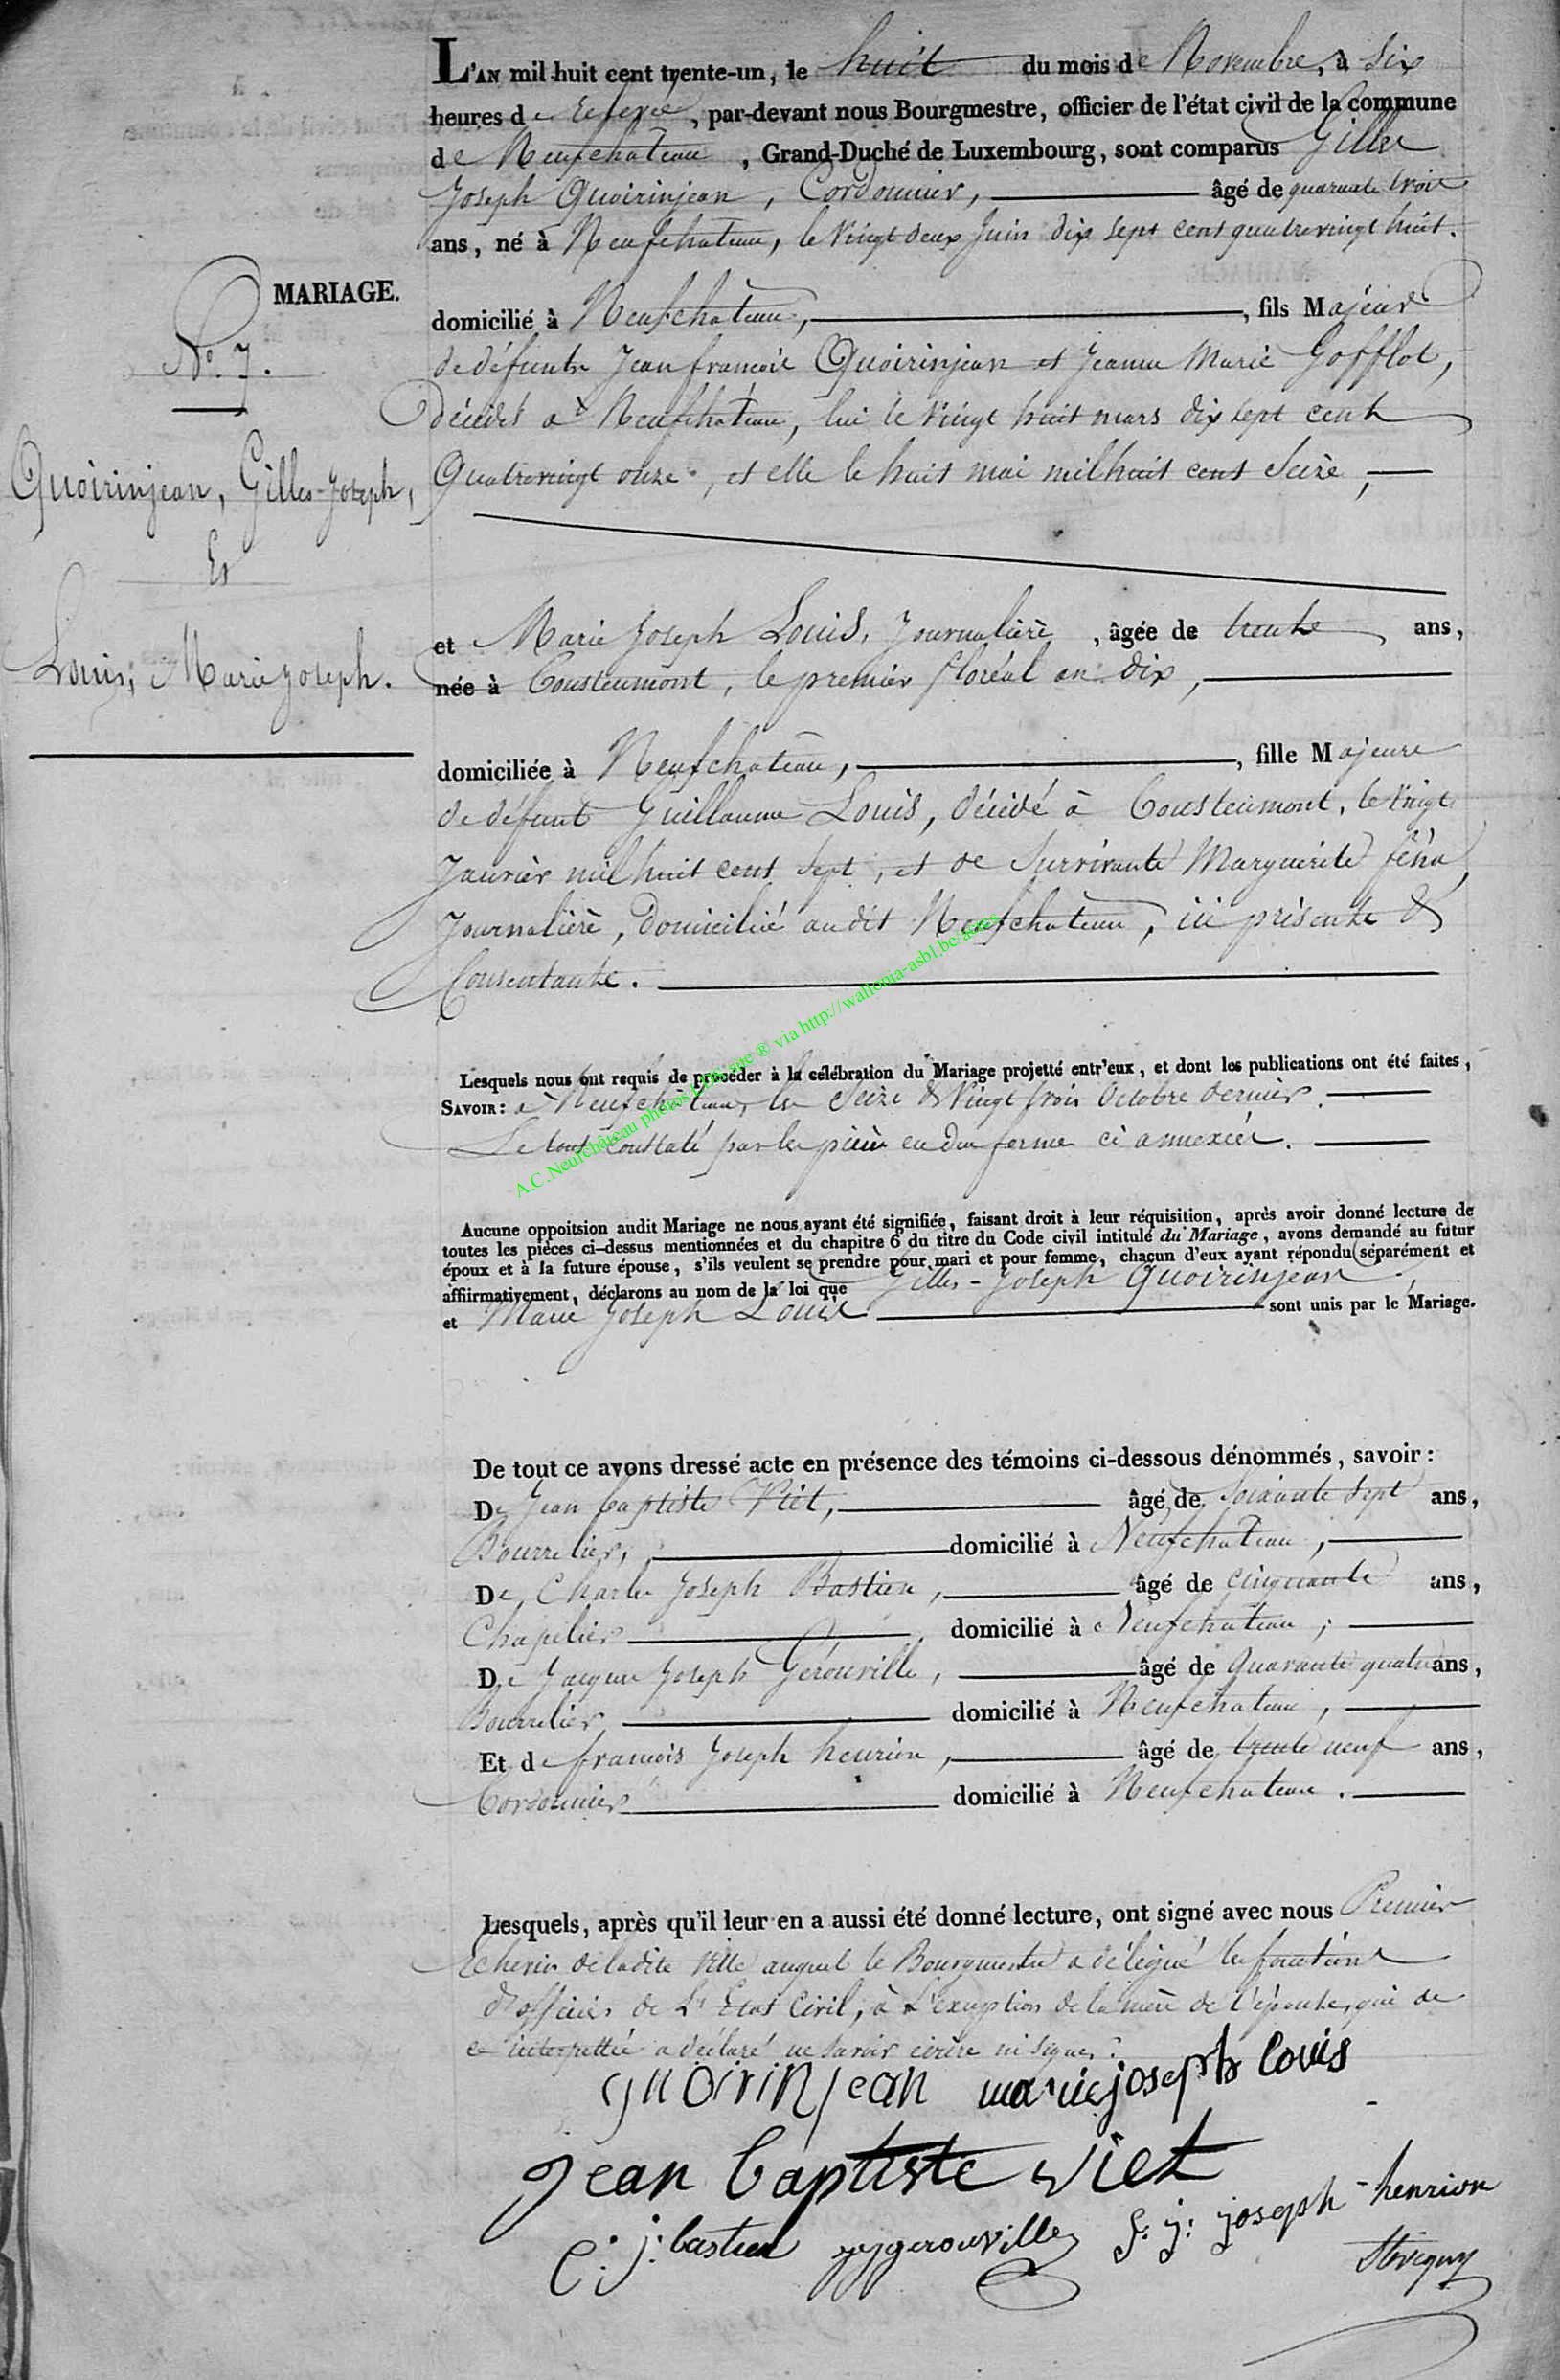 L'AN mil huit cent trente-un, le huit du mois de Novembre, à six
heures de relevé, par-devant nous Bourgmestre, officier de l'état civil de la commune
de Neufchateau, Grand-Duché de Luxembourg, sont comparus Gilles
Joseph Quoirinjean, Cordonnier, âgé de quarante trois
ans, né à Neufchateau, le vingt deux Juin dix sept cent quatrevingt huit.
MARIAGE.
domicilié à Neufchateau, fils Majeur
N.o 7.
de défunts Jean francois Quoirinjean et Jeanne Marie Gofflot,
décédés à Neufchateau, lui le vingt huit mars dix sept cent
Quatrevingt onze, et elle le huit mai mil huit cent Seize,
Quoirinjean, Gilles-Joseph,
Et
Louis, Marie joseph.
et Marie Joseph Louis, Journalière, âgée de trente ans,
née à Cousteumont, le premier floréal an dix,
domiciliée à Neufchateau, fille Majeure
de défunt Guillaume Louis, décédé à Cousteumont, le vingt
Janvier mil huit cent sept, et de Survivante Marguerite
Journalière, domicilié audit Neufchateau, ici présente &
Consentante.
A.C.Neufchâteau photos via http://wallonia-asbl.be
Lesquels nous ont requis de procéder à la célébration du Mariage projetté entr'eux, et dont les publications ont été faites,
SAVOIR: à Neufchateau, les Seize & Vingt trois Octobre dernier.
Le tout constaté par les pièces en due forme ci annexées.
Aucune oppoitsion audit Mariage ne nous ayant été signifiée, faisant droit à leur réquisition, après avoir donné lecture de
toutes les pièces ci-dessus mentionnées et du chapitre 6 du titre du Code civil intitulé du Mariage, avons demandé au futur
époux et à la future épouse, s'ils veulent se prendre pour mari et pour femme, chacun d'eux ayant répondu séparément et
affiirmativement, déclarons au nom de la loi que Gilles-Joseph Quoirinjean
et Marie Joseph Louis sont unis par le Mariage.
De tout ce avons dressé acte en présence des témoins ci-dessous dénommés, savoir:
De Jean baptiste Viet, âgé de Soixante Sept ans,
Bourrelier, domicilié à Neufchateau,
De Charles Joseph Bastien, âgé de cinquante ans,
Chapelier domicilié à Neufchateau;
De Jacques Joseph Gérouville, âgé de Quarante quatre ans,
Bourrelier domicilié à Neufchateau,
Et de francois Joseph henrion, âgé de trente neuf ans,
Cordonnier domicilié à Neufchateau.
Lesquels, après qu'il leur en a aussi été donné lecture, ont signé avec nous Premier
Echevin de ladite Ville auquel le Bourgmestre a délégué les fonctions
d'officier de L'Etat Civil, à L'exception de la mère de l'épouse, qui de
ce interpettée a déclaré ne savoir écrire ni signer.
quoirinjean marie joseph louis
jean baptiste viet
C: j: bastien jjgerouville f: j: joseph-henrion